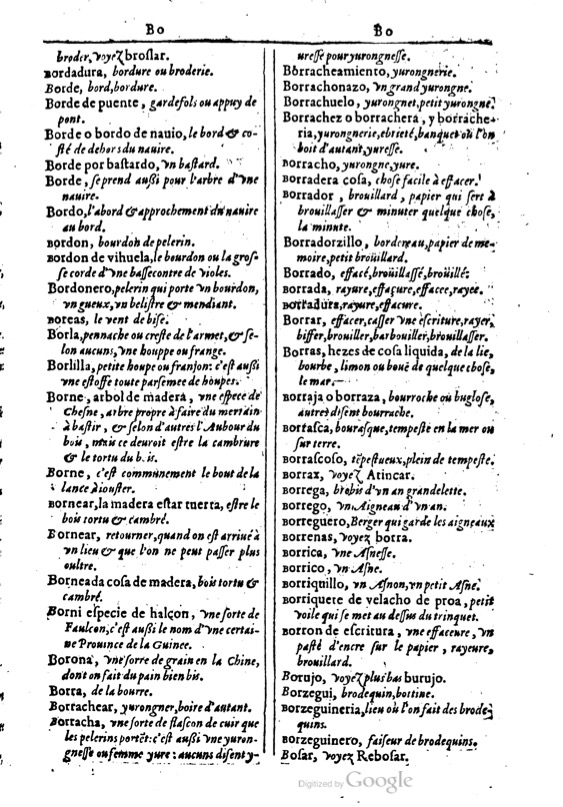 Bo
broder, voyez broslar.
Bordadura, bordure ou broderie.
Borde, bord, bordure.
Borde de puente, gardefols ou appuy de
pont.
Borde o bordo de nauio, le bord & co-
sté de dehors du nauire.
Borde por bastardo, vn bastard.
Borde, se prend aussi pour l'arbre d'vne
nauire.
Bordo, l'abord & approchement du nauire
au bord.
Bordon, bourdon de pelerin.
Bordon de vihuela, le bourdon ou la gros-
se corde d'vne bassecontre de violes.
Bordonero, pelerin qui porte vn bourdon,
vn gueux, vn belistre & mendiant.
Boreas, le vent de bise.
Borla, pennache ou creste de l'armet, & se-
lon aucuns, vne houppe ou frange.
Borlilla, petite houpe ou franjon: c'est aussi
vne estoffe toute parsemee de houpes.
Borne, arbol de madera, vne espece de
Chesne, arbre propre à faire du merrain
à bastir, & selon d'autres l'Aubour du
bois, mais ce deuroit estre la cambrure
& le tortu du bois.
Borne, c'est communement le bout de la
lance à iouster.
Bornear, la madera estar tuerta, estre le
bois tortu & cambré.
Bornear, retourner, quand on est arriué à
vn lieu & que l'on ne peut passer plus
oultre.
Borneada cosa de madera, bois tortu &
cambré.
Borni especie de halcon, vne sorte de
Faulcon, c'est aussi le nom d'vne certai-
ne Prouince de la Guinee.
Borona, vne sorre de grain en la Chine,
dont on fait du pain bien bis.
Borra, de la bourre.
Borrachear, yurongner, boire d'autant.
Borracha, vne sorte de flascon de cuir que
les pelerins portẽt: c'est aussi vne yuron-
gnesse ou femme yure: aucuns disent y-
Bo
uresse pour yurongnesse.
Borracheamiento, yurongnerie.
Borrachonazo, vn grand yurongne.
Borrachuelo, yurongnet, petit yurongne.
Borrachez o borrachera, y borrache-
ria, yurongnerie, ebrieté, banquet où l'on
boit d'autant, yuresse.
Borracho, yurongne, yure.
Borradera cosa, chose facile à effacer.
Borrador, brouillard, papier qui sert à
brouillasser & minuter quelque chose,
la minute.
Borradorzillo, bordereau, papier de me-
moire, petit broüillard.
Borrado, effacé, broüillassé, broüillé.
Borrada, rayure, effaçure, effacee, rayee.
Borradura, rayure, effacure.
Borrar, effacer, casser vne escriture, rayer,
biffer, brouiller, barbouiller, brouillasser.
Borras, hezes de cosa liquida, de la lie,
bourbe, limon ou bouë de quelque chose,
le mar.
Borraja o borraza, bourroche ou buglose,
autres disent bourrache.
Bortasca, bourasque, tempeste en la mer ou
sur terre.
Borrascoso, tẽpestueux, plein de tempeste.
Borrax, voyez Atincar.
Borrega, brebis d'vn an grandelette.
Borrego, vn Aigneau d'vn an.
Borreguero, Berger qui garde les aigneaux
Borrenas, voyez borra.
Borrica, vne Asnesse.
Borrico, vn Asne.
Borriquillo, vn Asnon, vn petit Asne.
Borriquete de velacho de proa, petit
voile qui se met au dessus du trinquet.
Borron de escritura, vne effaceure, vn
pasté d'encre sur le papier, rayeure,
brouillard.
Borujo, voyez plus bas burujo.
Borzegui, brodequin, bottine.
Borzeguineria, lieu où l'on fait des brode-
quins.
Borzeguinero, faiseur de brodequins.
Bosar, voyez Rebosar.
Digitized by Google